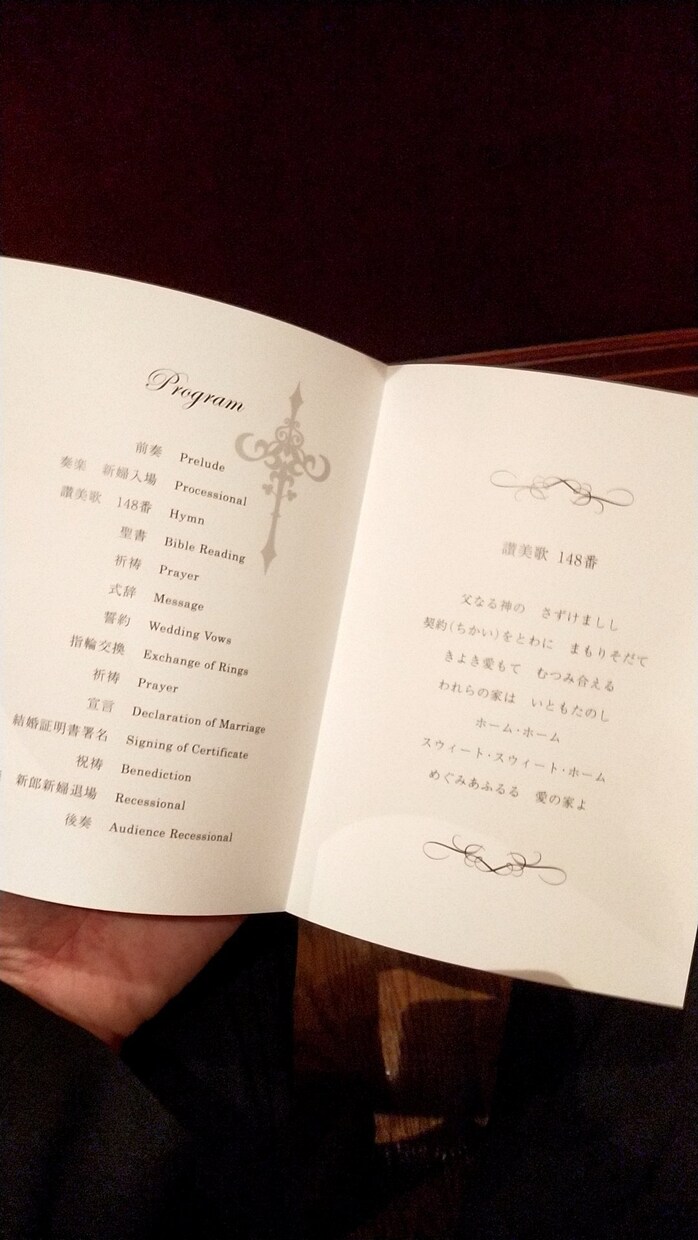 Program
前奏 Prelude
奏楽 新婦入場 Processional
讃美歌 148番 Hymn
聖書 Bible Reading
祈祷 Prayer
式辞 Message
誓約 Wedding Vows
指輪交換 Exchange of Rings
祈祷 Prayer
宣言 Declaration of Marriage
結婚証明書署名 Signing of Certificate
祝祷 Benediction
新郎新婦退場 Recessional
後奏 Audience Recessional
讃美歌 148番
父なる神の さずけましし
契約(ちかい)をとわに まもりそだて
きよき愛もて むつみ合える
われらの家は いともたのし
ホーム・ホーム
スウィート・スウィート・ホーム
めぐみあふるる 愛の家よ